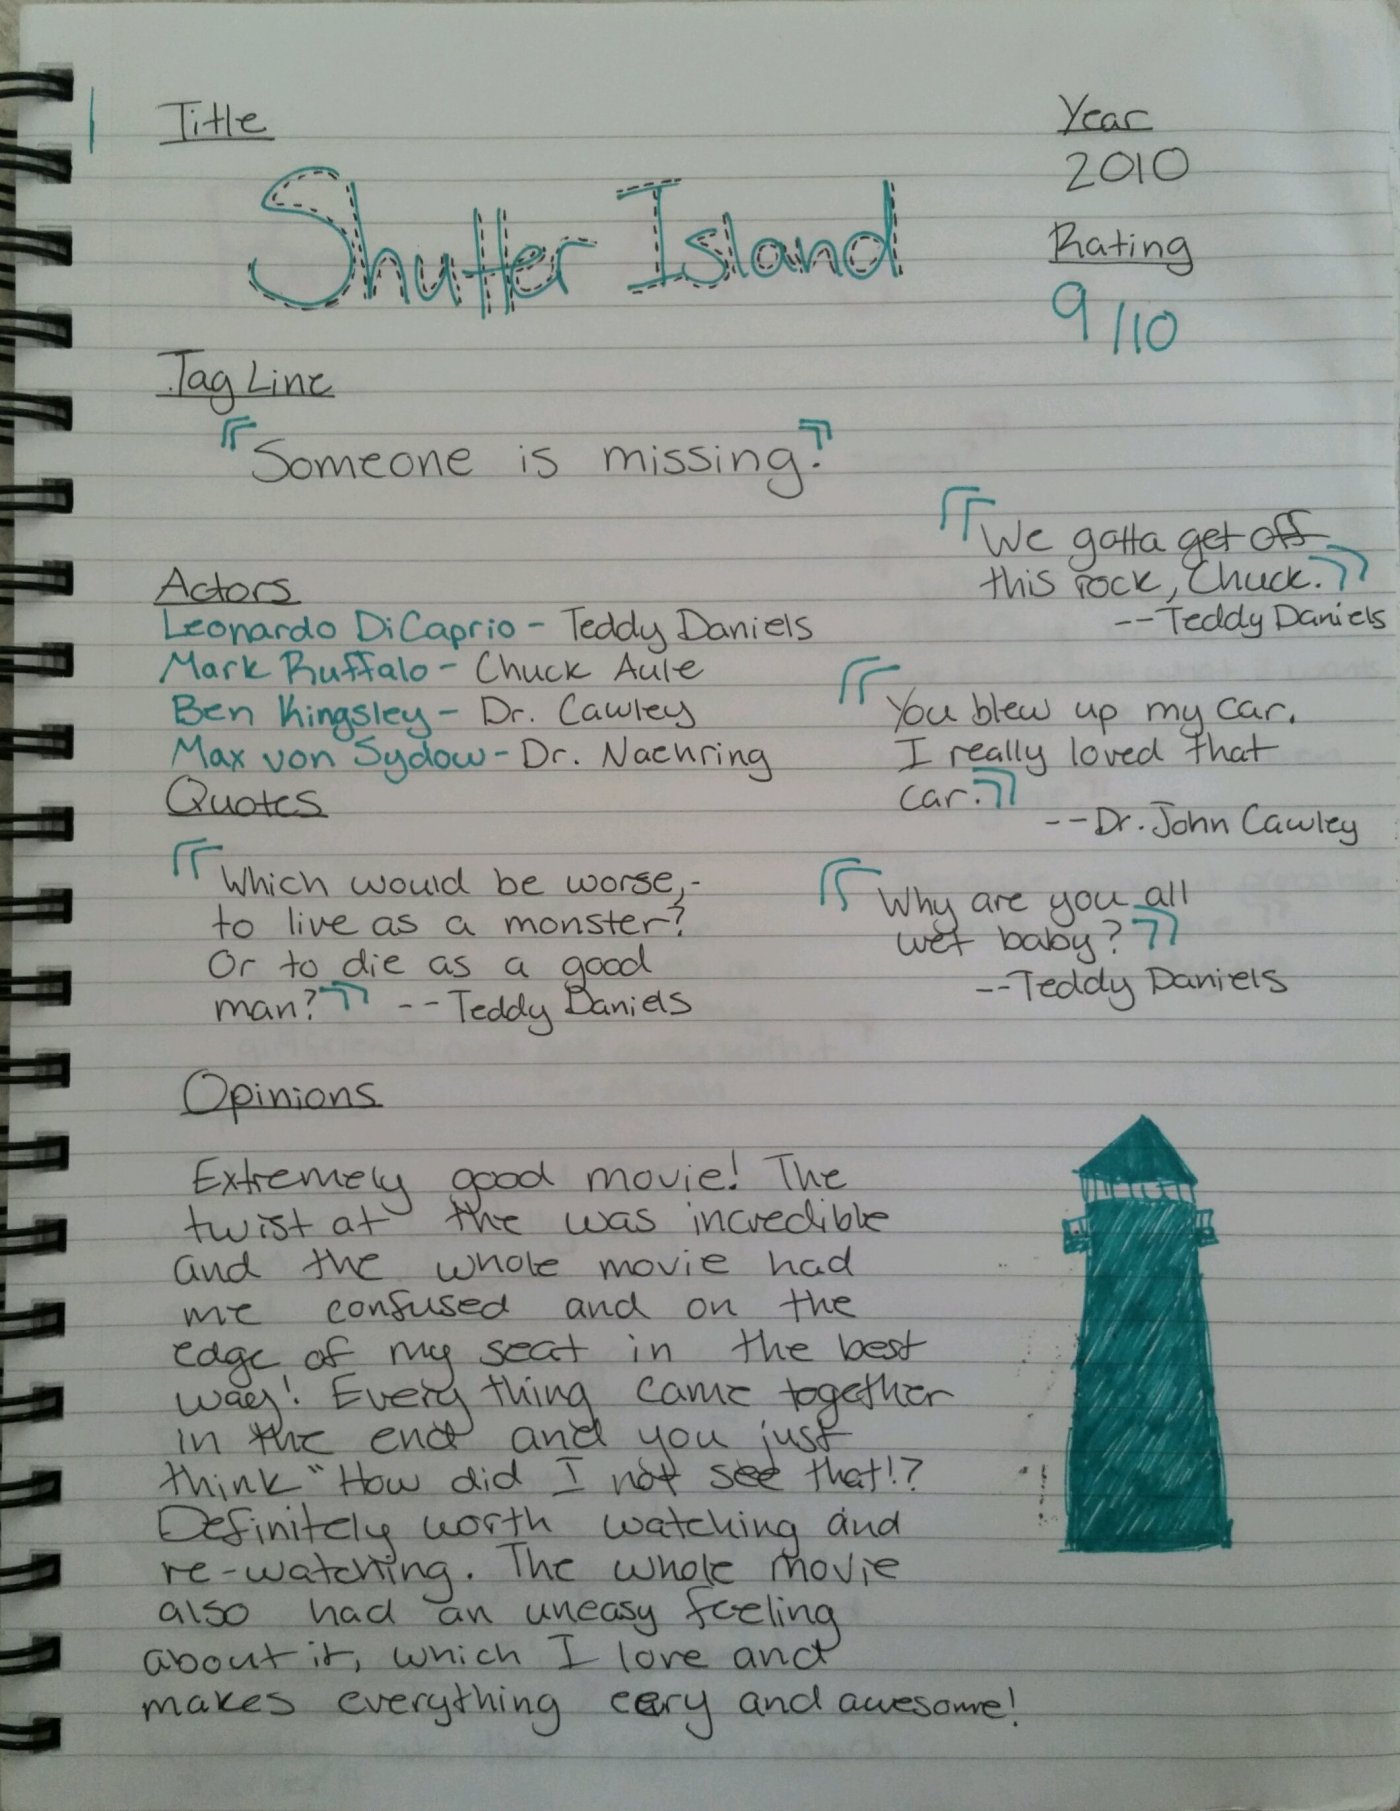 Title
Shutter Island
Year
2010
Rating
9/10
Tag Line
"Someone is missing."
Actors
Leonardo DiCaprio - Teddy Daniels
Mark Ruffalo - Chuck Aule
Ben Kingsley - Dr. Cawley
Max von Sydow - Dr. Naehring
Quotes
"Which would be worse,-
to live as a monster?
Or to die as a good
man?" -- Teddy Daniels
"We gotta get off
this rock, Chuck."
--Teddy Daniels
"You blew up my car.
I really loved that
car."
--Dr. John Cawley
"Why are you all
wet baby?"
--Teddy Daniels
Opinions
Extremely good movie! The
twist at the was incredible
and the whole movie had
me confused and on the
edge of my seat in the best
way! Every thing came together
in the end and you just
think "How did I not see that!?
Definitely worth watching and
re-watching. The whole movie
also had an uneasy feeling
about it, which I love and
makes everything eery and awesome!